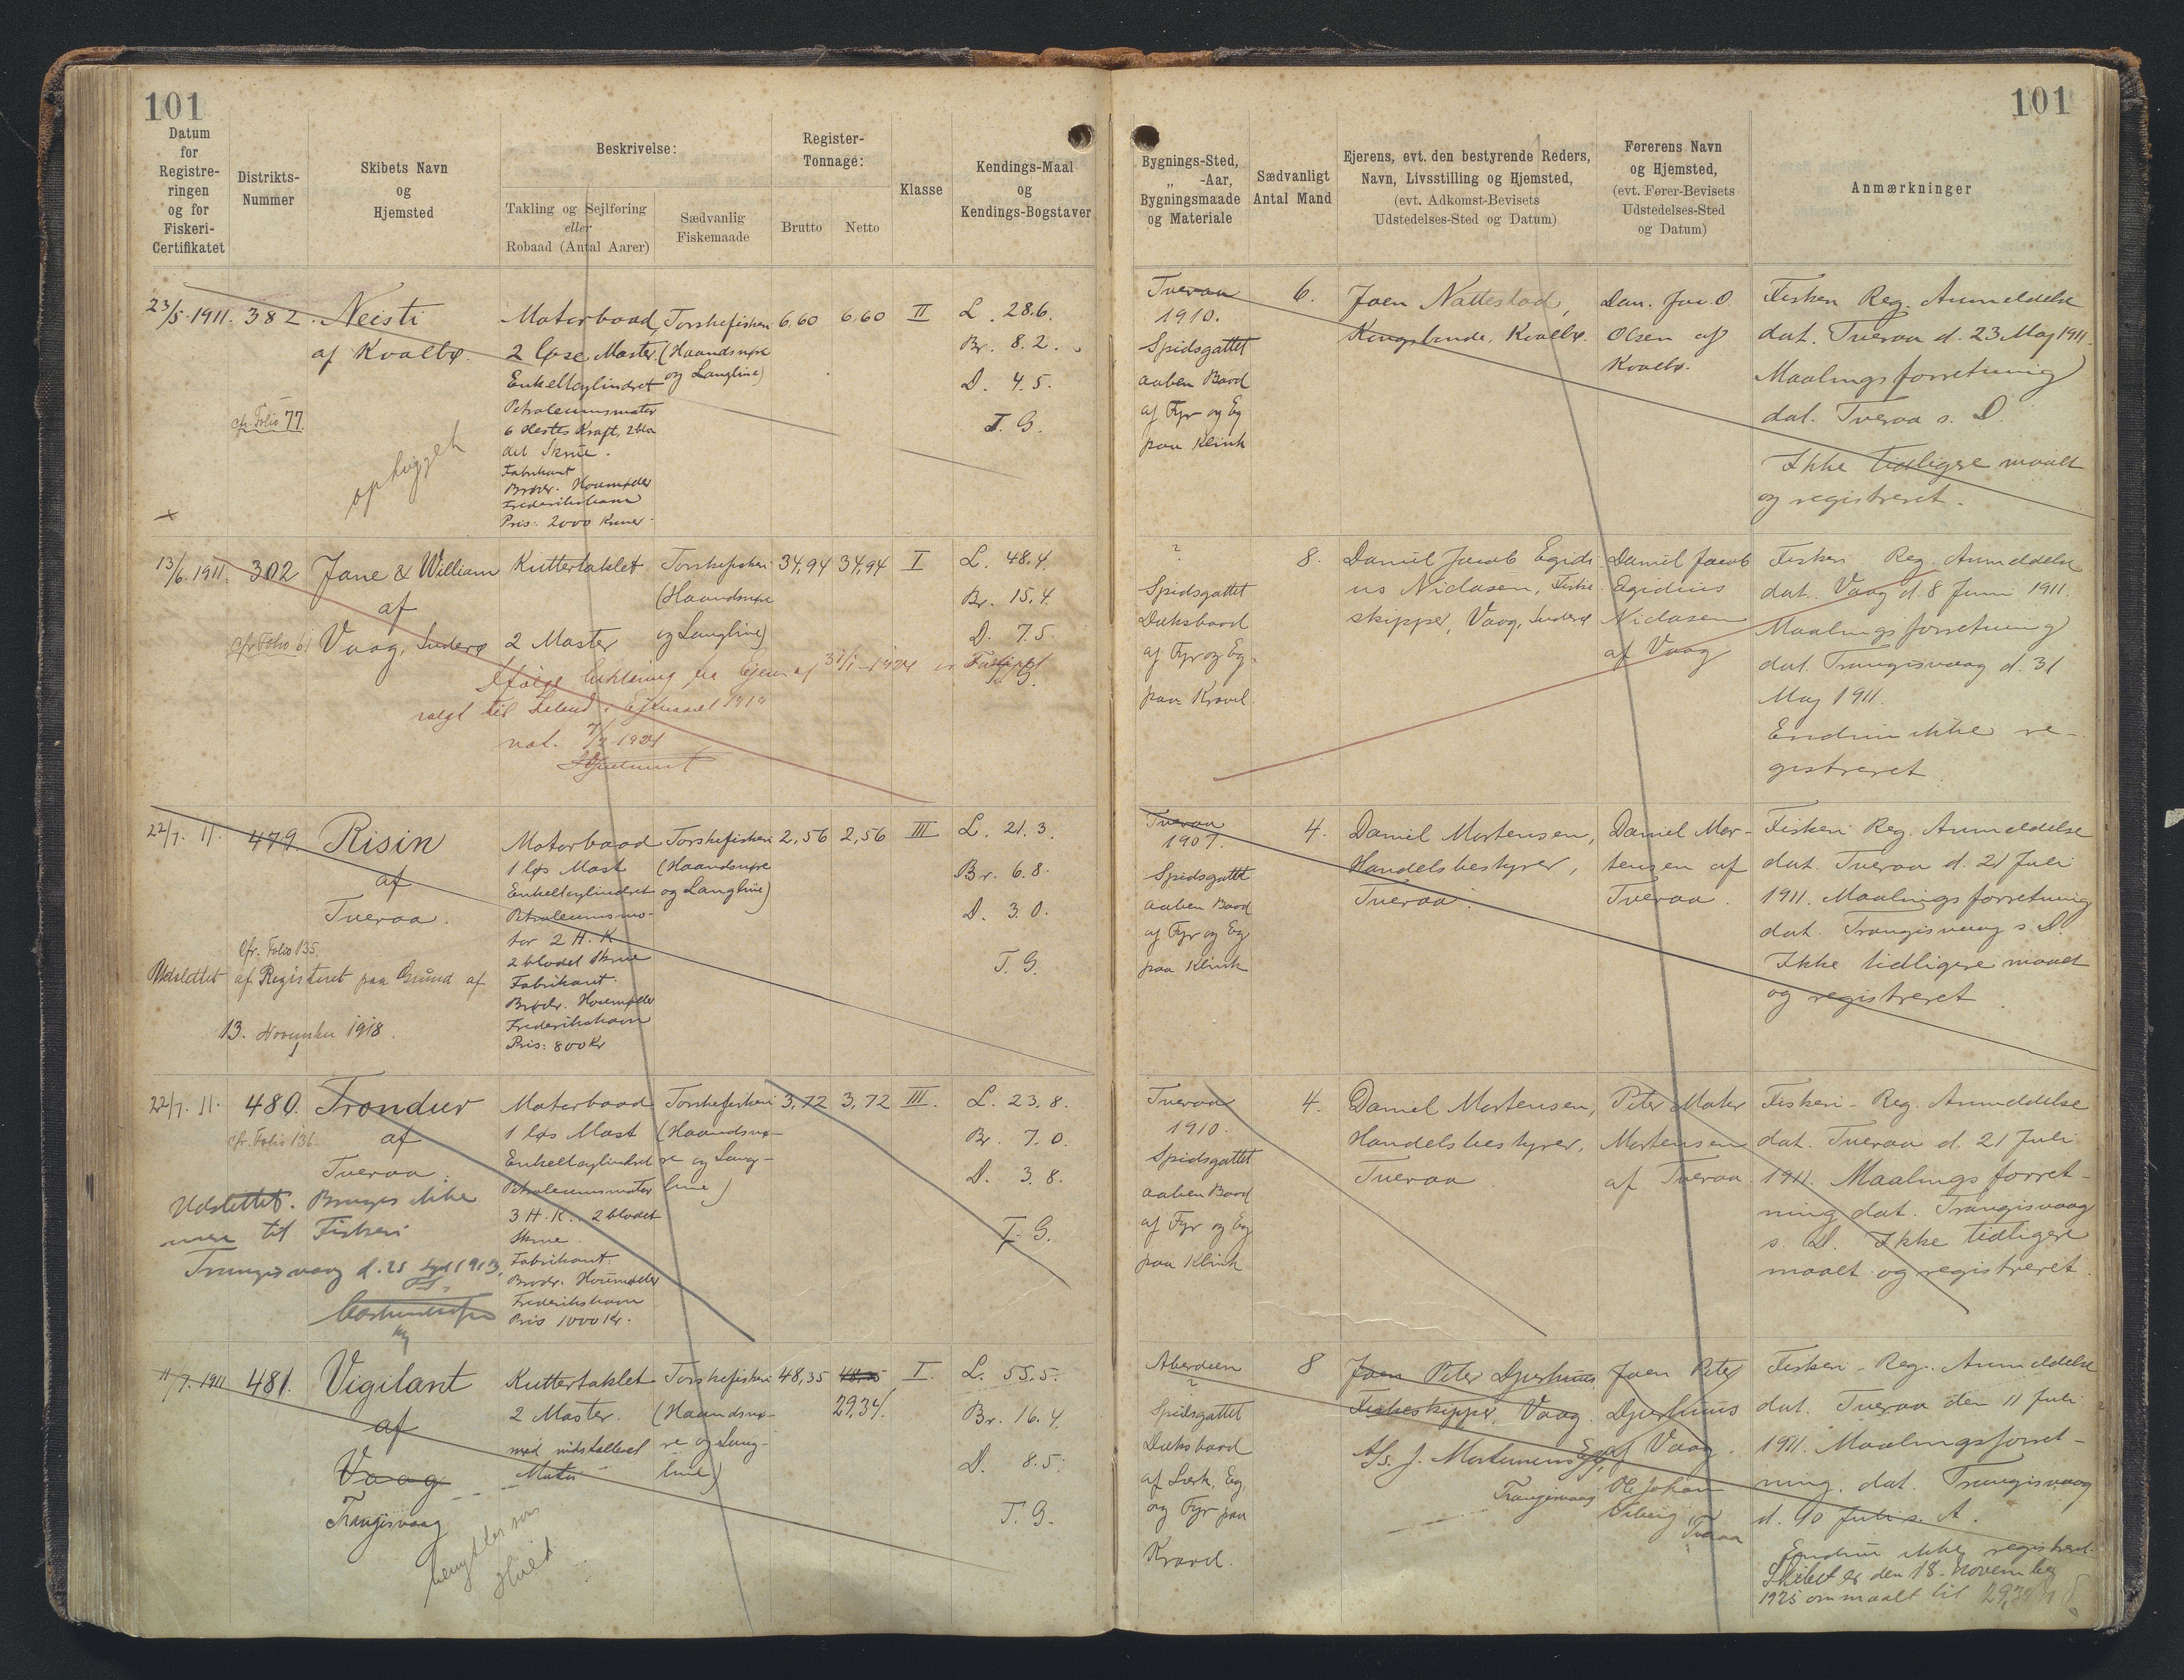 101
101
Datum
for
Registre-
ringen
og for
Fiskeri-
Certifikatet
Distrikts-
Nummer
Skibets Navn
og
Hjemsted
Beskrivelse:
Takling og Sejlføring
eller
Robaad (Antal Aarer)
Sædvanlig
Fiskemaade
Register-
Tonnage:
Brutto
Netto
Klasse
Kendings-Maal
og
Kendings-Bogstaver
Bygnings-Sted,
„ -Aar,
Bygningsmaade
og Materiale
Sædvanligt
Antal Mand
Ejerens, evt. den bestyrende Reders,
Navn, Livsstilling og Hjemsted,
(evt. Adkomst-Bevisets
Udstedelses-Sted og Datum)
Førerens Navn
og Hjemsted,
(evt. Fører-Bevisets
Udstedelses-Sted
og Datum)
Anmærkninger
23/5. 1911.
382.
Neisti
af Kvalbø.
cfr. Folio 77.
ophugget
Motorbaad,
2 løse Master.
Enkeltcylindret
Petroleumsmotor
6 Hestes Kraft, 2 bla
det Skrue.
Fabrikant
Brødr. Houmøller
Frederikshavn
Pris: 2000 Kroner.
Torskefiskeri
(Haandsnøre
og Langline)
6,60
6,60
II
L. 28.6.
Br. 8.2.
D. 4.5.
T. G.
Tveraa
1910.
Spidsgattet
aaben Baad
af Fyr og Eg
paa Klink
6.
Joen Nattestad,
Kongsbonde, Kvalbø.
Dan. Joe. O.
Olsen af
Kvalbø.
Fiskeri Reg. Anmeldelse
dat. Tveraa d. 23 Maj 1911.
Maalingsforretning
dat. Tveraa s. D.
Ikke tidligere maalt
og registreret.
13/6. 1911.
302
Jane & William
af
Vaag, Suderø
cfr. Folio 61
Kuttertaklet
2 Master
Torskefiskeri
(Haandsnøre
og Langline)
34,94
34,94
I
L. 48.4.
Br. 15.4.
D. 7.5.
T. G.
Ifølge Erklæring fra Ejeren af 31/1-1924 er Fartøjet
solgt til Island i Efteraaret 1919
not. 7/2 1924
?
Spidsgattet
Dæksbaad
af Fyr og Eg.
paa Kravel.
8.
Daniel Jacob Egidi
us Niclasen, Fiske
skipper, Vaag, Suderø
Daniel Jacob
Egidius
Niclasen
af Vaag
Fiskeri Reg. Anmeldelse
dat. Vaag d. 8 Juni 1911.
Maalingsforretning
dat. Trangisvaag d. 31
Maj 1911.
Endnu ikke re-
gistreret.
22/7. 11.
479.
Risin
af
Tveraa.
cfr. Folio 135.
Udslettet af Registeret paa Grund af
13. November 1918.
Motorbaad
1 løs Mast
Enkeltcylindret
Petroleumsmo-
tor 2 H. K.
2 bladet Skrue
Fabrikant.
Brødr. Houmøller
Frederikshavn
Pris: 800 Kr
Torskefiskeri
(Haandsnøre
og Langline)
2,56
2,56
III
L. 21.3.
Br. 6.8.
D. 3.0.
T. G.
Tveraa
1907.
Spidsgattet
aaben Baad
af Fyr og Eg
paa Klink
4.
Daniel Mortensen,
Handelsbestyrer,
Tveraa.
Daniel Mor-
tensen af
Tveraa.
Fiskeri Reg. Anmeldelse
dat. Tveraa d. 21 Juli
1911. Maalingsforretning
dat. Trangisvaag s. D.
Ikke tidligere maalt
og registreret.
22/7. 11.
480.
Trondur
af
Tveraa.
cfr. Folio 136.
Udslettet. Bruges ikke
mere til Fiskeri
Trangisvaag d. 25 1913.
Motorbaad
1 løs Mast
Enkeltcylindret
Petroleumsmotor
3 H. K. 2 bladet
Skrue.
Fabrikant.
Brødr. Houmøller
Frederikshavn
Pris 1000 Kr.
Torskefiskeri
(Haandsnø-
re og Lang-
line)
3,72
3,72
III.
L. 23.8.
Br. 7.0.
D. 3.8.
T. G.
Tveraa
1910.
Spidsgattet
aaben Baad
af Fyr og Eg
paa Klink
4.
Daniel Mortensen,
Handelsbestyrer,
Tveraa.
Peter
Mortensen
af Tveraa
Fiskeri-Reg. Anmeldelse
dat. Tveraa d. 21 Juli
1911. Maalingsforret-
ning dat. Trangisvaag
s. D. Ikke tidligere
maalt og registreret.
11/7. 1911
481.
Vigilant
af
Vaag
Trangisvaag
Kuttertaklet
2 Master.
med indstalleret
Motor
Torskefiskeri
(Haandsnø-
re og Lang-
line)
48,35
29,34.
I.
L. 55.5.
Br. 16.4.
D. 8.5.
T. G.
Aberdeen
?
Spidsgattet
Dæksbaad
af Lærk, Eg,
og Fyr paa
Kravel.
8
Joen Peter Djurhuus
Fiskeskipper, Vaag.
A/S. J. Mortensens Eft.
Trangisvaag
Joen Peter
Djurhuus
af Vaag.
Ole Johan
Viberg
Tveraa
Fiskeri-Reg. Anmeldelse
dat. Tveraa den 11 Juli
1911. Maalingsforret-
ning. dat. Trangisvaag
d. 10 Juli s. A.
Endnu ikke registreret.
Skibet er den 18. November
1925 ommaalt til 29,34